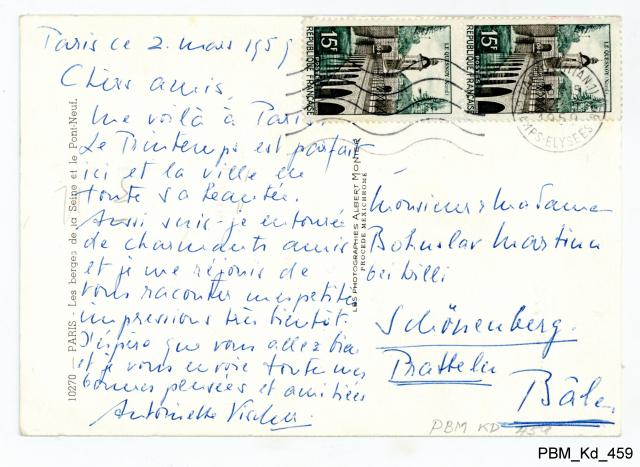 Paris ce 2. mars 1959
Chers amis,
Me voilà à Paris.
Le Printemps est parfait
ici et la ville en
toute sa beautée.
Aussi suis-je entourée
de charmants amis
et je me réjouis de
vous raconter mes petites
impressions très bientôt.
J'espère que vous allez bien
et je vous envoie toutes mes
bonnes pensées et amitiées
Antoinette
Monsieur & Madame
Bohuslav Martinu
bei Willi
Schönenberg.
Pratteln
Bâle
10270 - PARIS - Les berges de la Seine et le Pont-Neuf.
LES PHOTOGRAPHIES ALBERT MONIER
PROCÉDÉ MEXICHROME
REPUBLIQUE FRANÇAISE
15F
POSTES
LE QUESNOY
REPUBLIQUE FRANÇAISE
15F
LE QUESNOY
1959
PS-ELYSEES
PBM KD 459
PBM_Kd_459